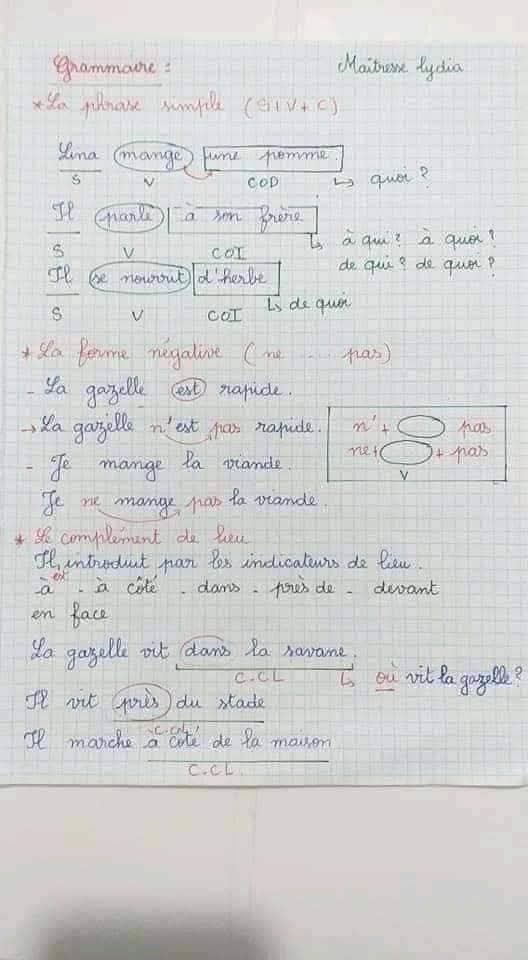 Grammaire : Maîtresse Lydia
* La phrase simple (S+V+C)
Lina mange une pomme.
S V COD ↳ quoi ?
Il parle à son frère
↳ à qui ? à quoi ?
S V COI de qui ? de quoi ?
Il se nourrit d'herbe
S V COI ↳ de quoi
* La forme négative (ne ... pas)
- La gazelle est rapide.
→ La gazelle n'est pas rapide. n'+ pas
- Je mange la viande. ne+ + pas
V
Je ne mange pas la viande.
* Le complément de lieu
Il est introduit par les indicateurs de lieu.
- à - à côté - dans - près de - devant
en face
La gazelle vit dans la savane.
C.CL ↳ où vit la gazelle ?
Il vit près du stade
C.CL
Il marche à côté de la maison
C.CL.